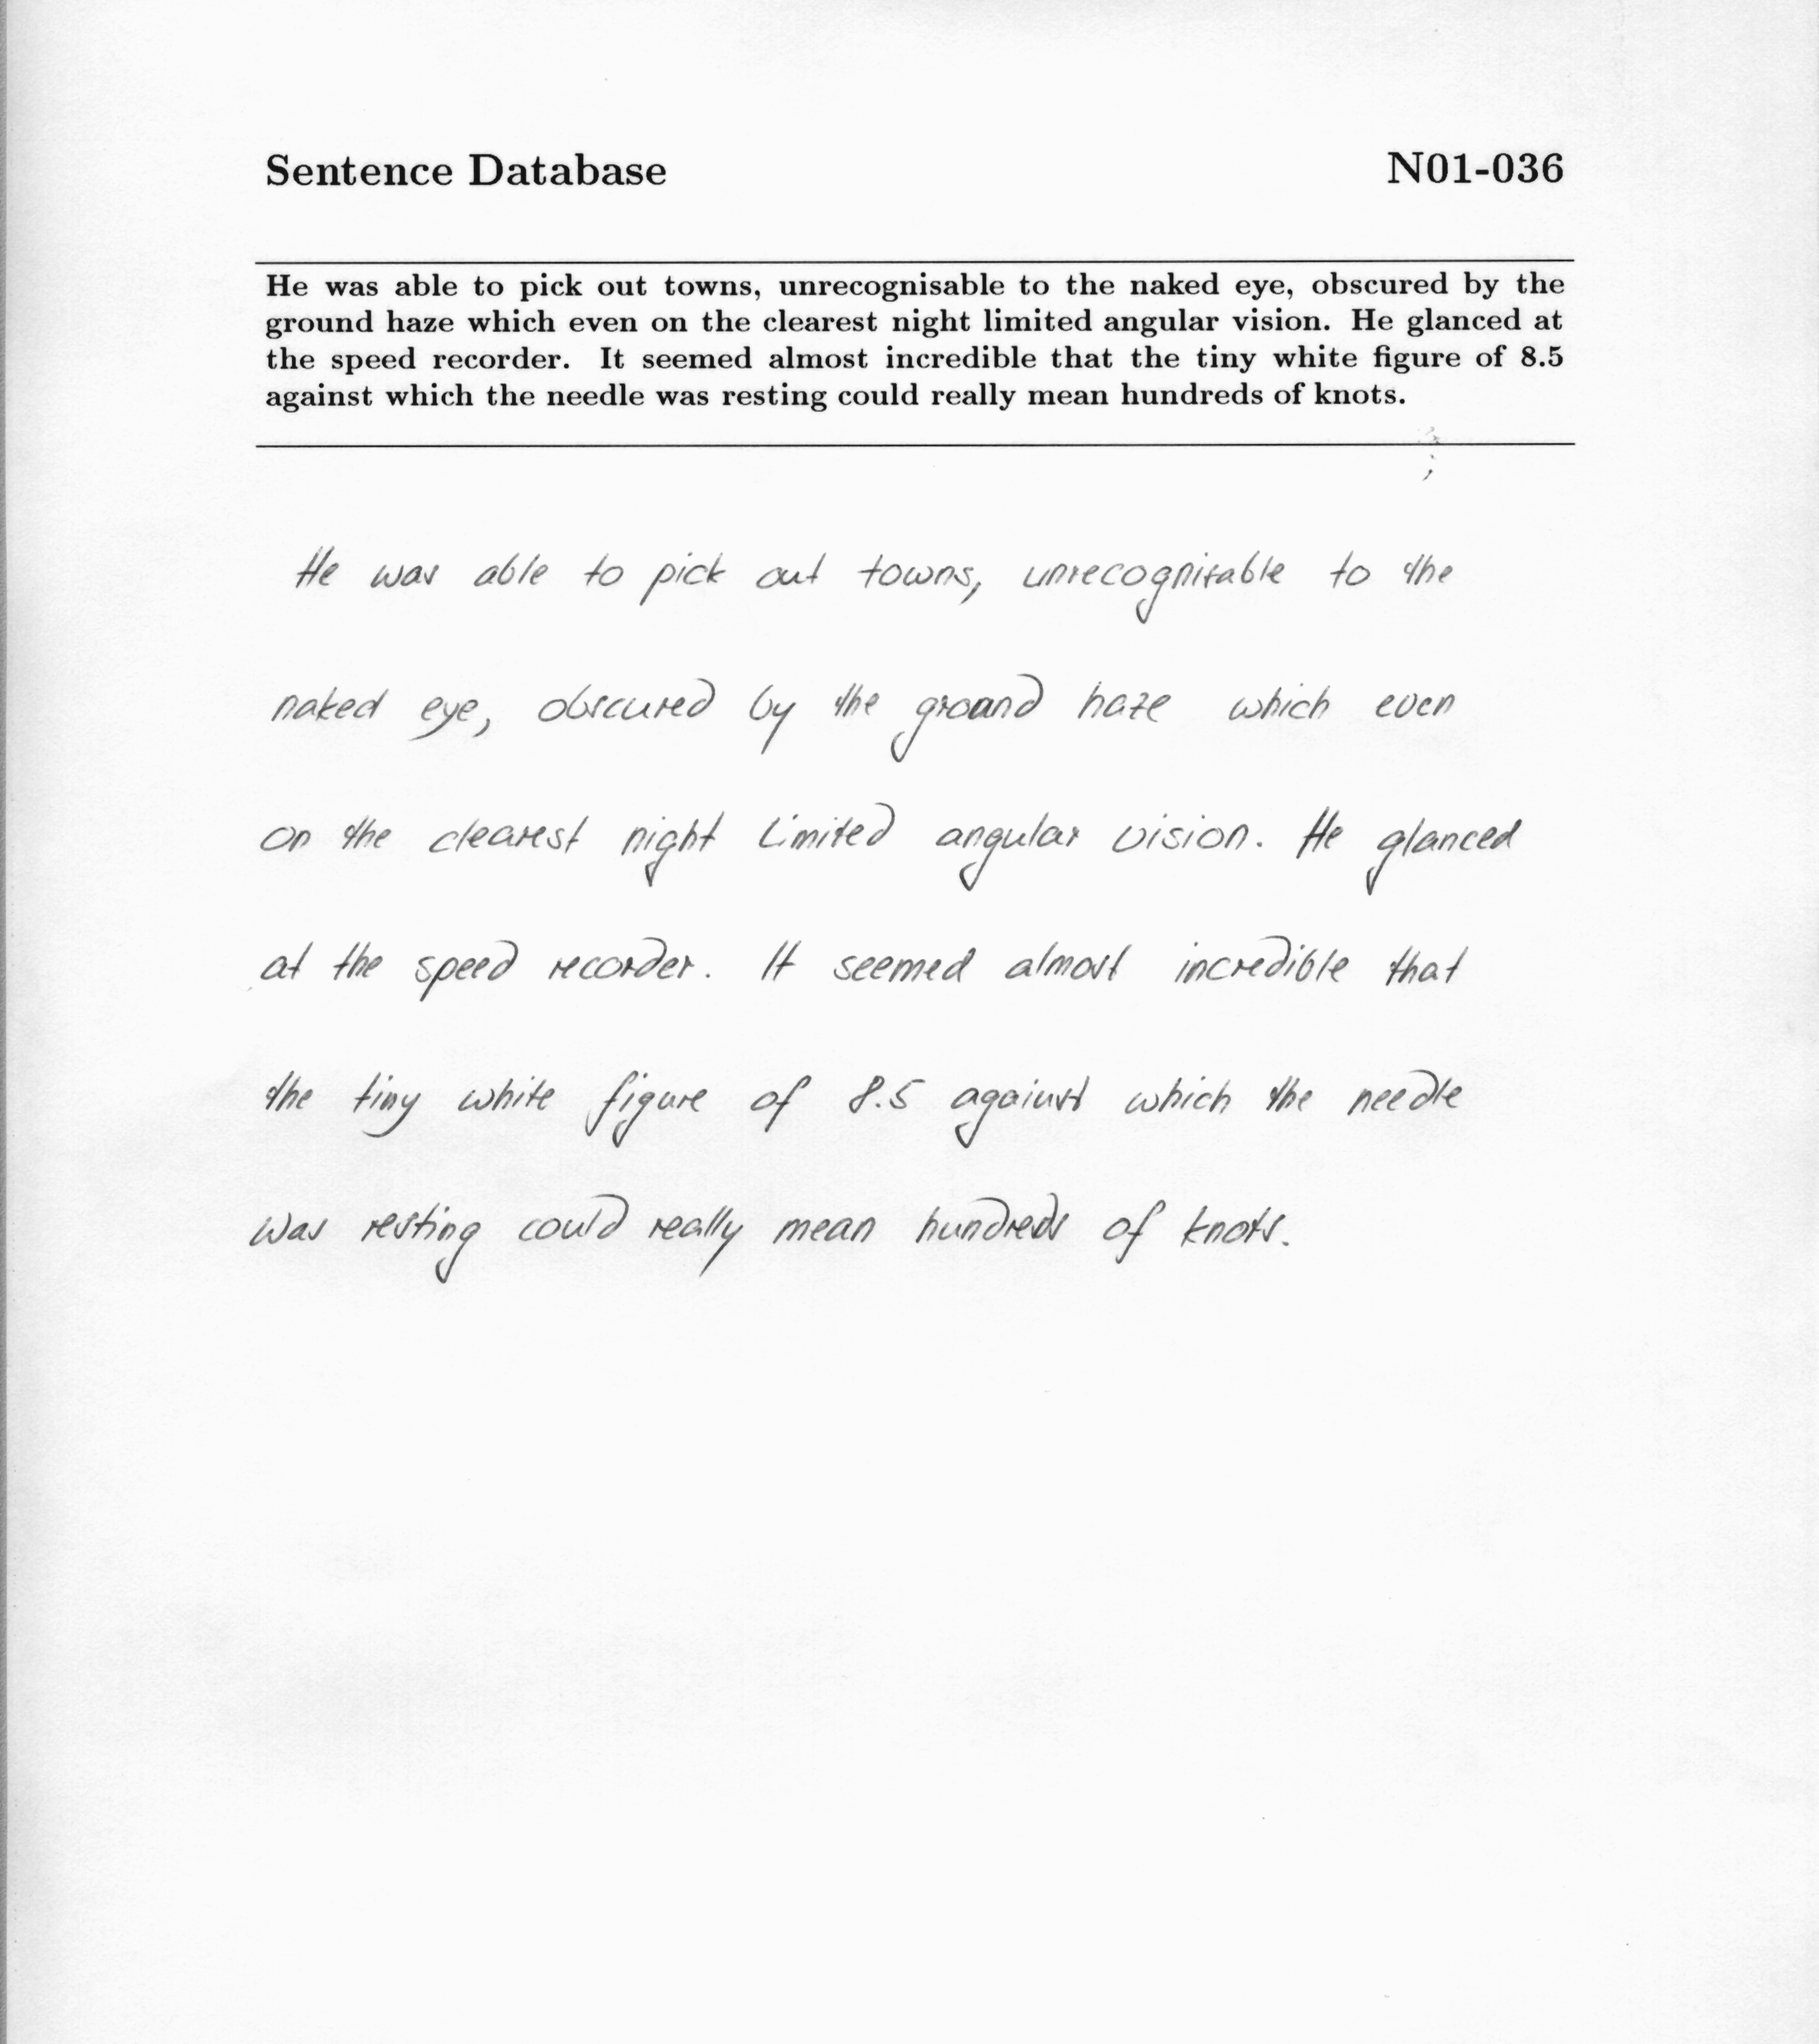 Sentence Database N01-036
He was able to pick out towns, unrecognisable to the naked eye, obscured by the
ground haze which even on the clearest night limited angular vision. He glanced at
the speed recorder. It seemed almost incredible that the tiny white figure of 8.5
against which the needle was resting could really mean hundreds of knots.
He was able to pick out towns, unrecognisable to the
naked eye, obscured by the ground haze which even
on the clearest night limited angular vision. He glanced
at the speed recorder. It seemed almost incredible that
the tiny white figure of 8.5 against which the needle
was resting could really mean hundreds of knots.